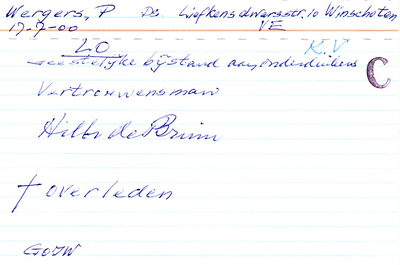 Wergers, P Ds. Liefkensdwarsstr. 10 Winschoten
17-7-00 VE
LO K.V
Geestelijke bijstand aan onderduikers C
Vertrouwensman
Hilbr de Bruin
† overleden
GOIW